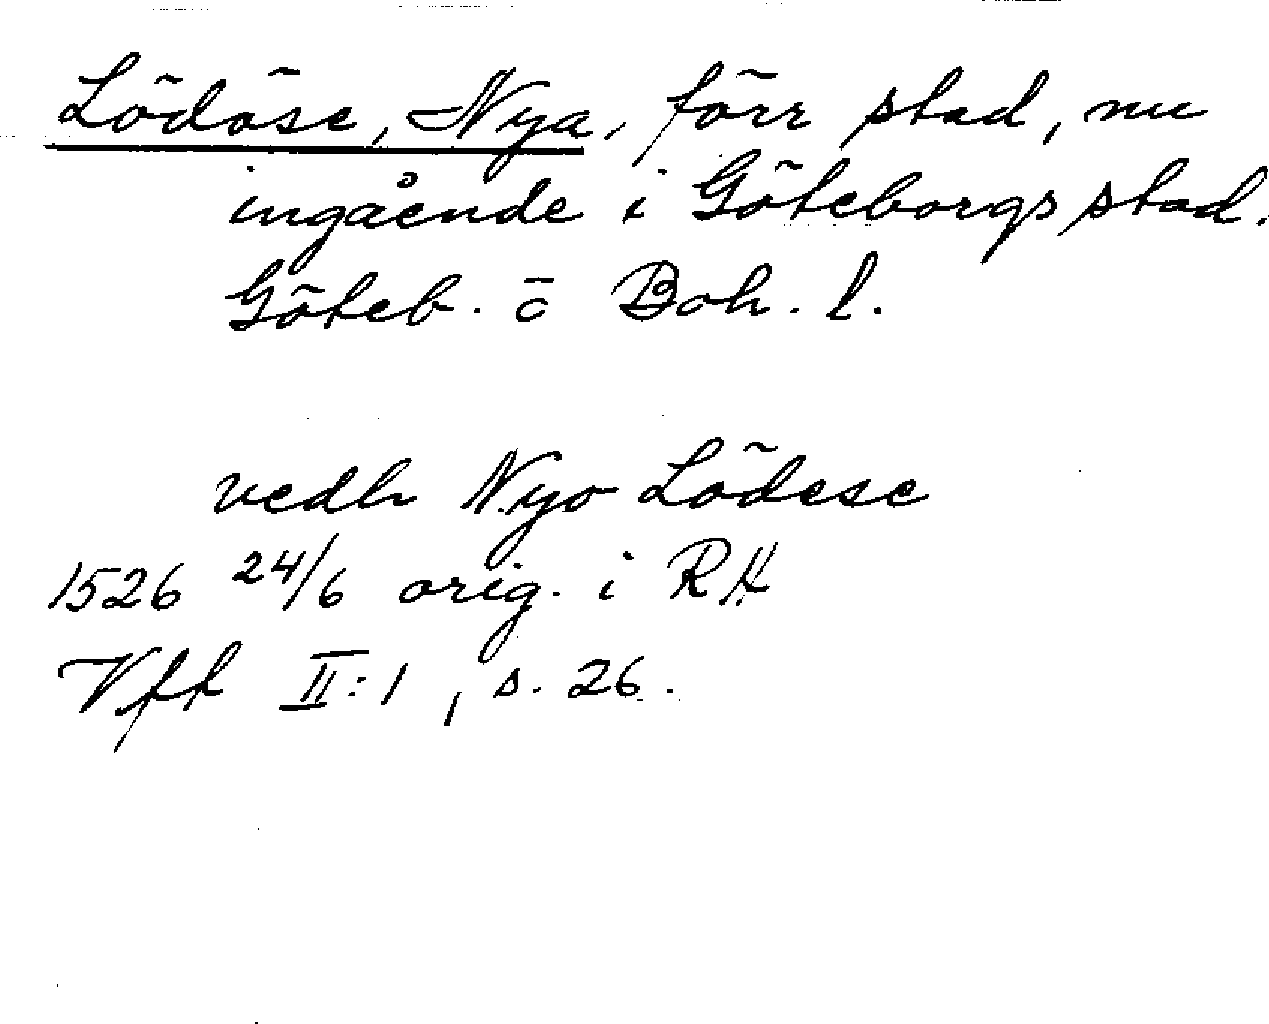 Lödöse, Nya, förr stad, nu
ingående i Göteborgs stad.
Göteb. o Boh. l.
vedh Nyo Lödese
1526 24/6 orig. i RH
Vff II:1, s. 26.